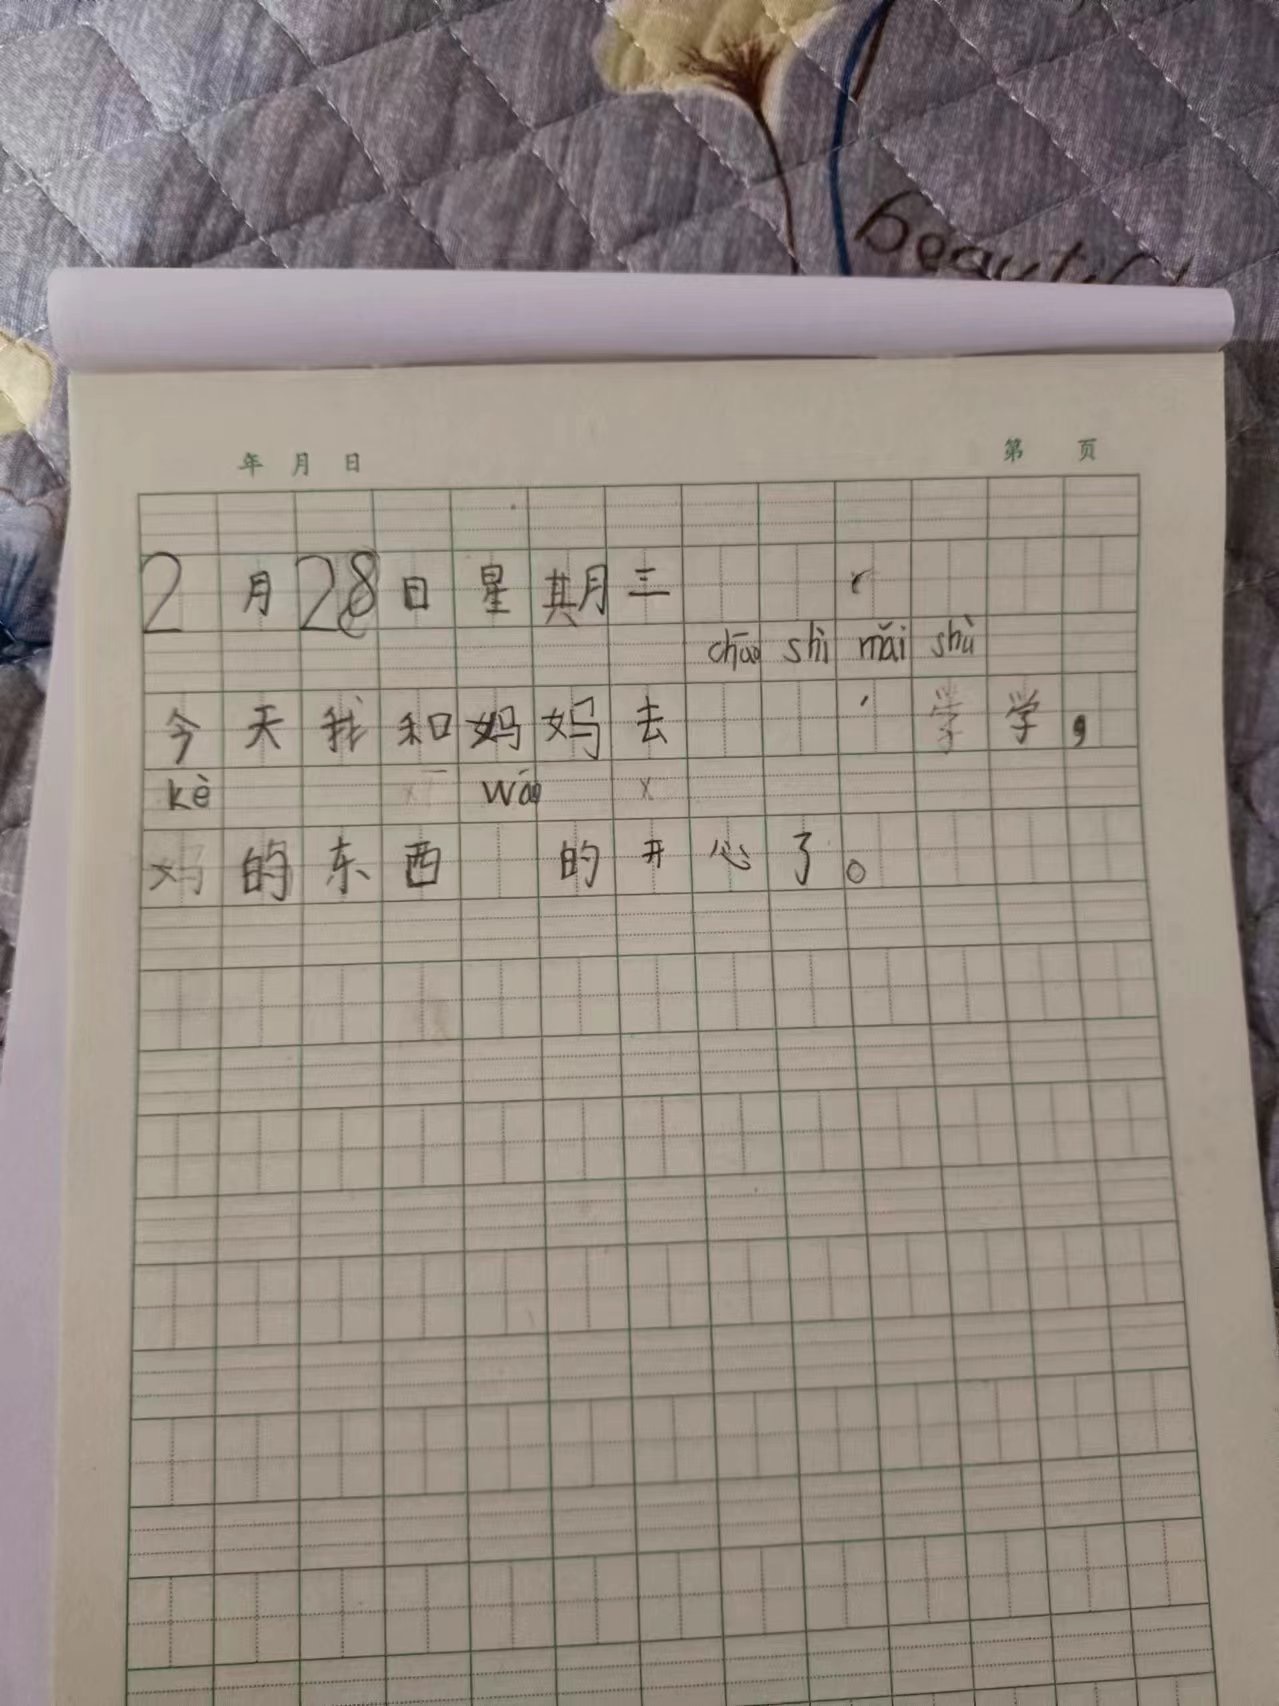 beautiful
年 月 日 第 页
2月28日星期三
chāo shì mǎi shù
今天我和妈妈去学学，
kè wáo
妈的东西的开心了。